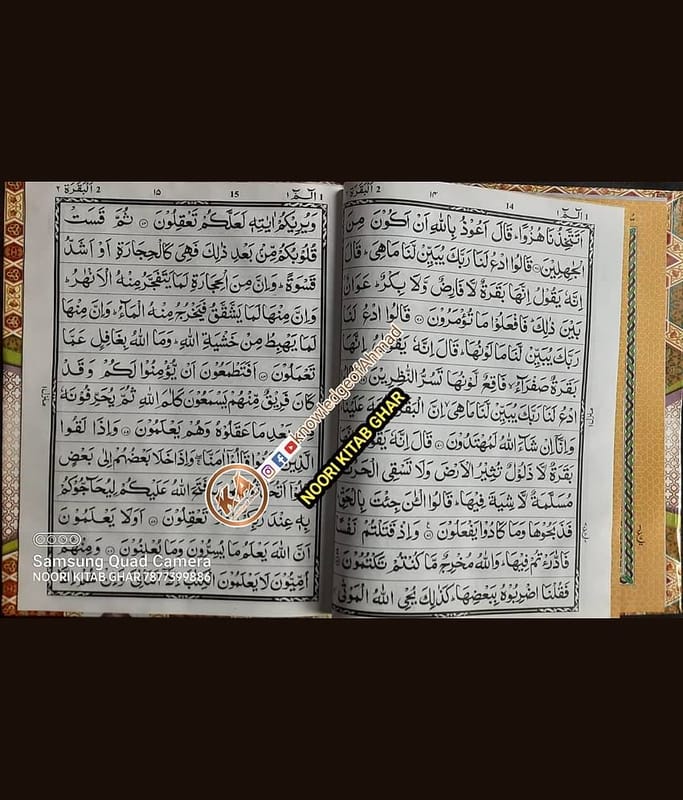 1 الٓمّٓ ١ 14 ١٤ 2 اَلْبَقَرَة ٢
اَتَتَّخِذُنَا هُزُوًاؕ قَالَ اَعُوْذُ بِاللّٰهِ اَنْ اَكُوْنَ مِنَ
الْجٰهِلِيْنَ قَالُوا ادْعُ لَنَا رَبَّكَ يُبَيِّنْ لَّنَا مَا هِىَؕ قَالَ
اِنَّهٗ يَقُوْلُ اِنَّهَا بَقَرَةٌ لَّا فَارِضٌ وَّلَا بِكْرٌؕ عَوَانٌۢ
بَيْنَ ذٰلِكَؕ فَافْعَلُوْا مَا تُؤْمَرُوْنَ قَالُوا ادْعُ لَنَا
رَبَّكَ يُبَيِّنْ لَّنَا مَا لَوْنُهَاؕ قَالَ اِنَّهٗ يَقُوْلُ اِنَّهَا
بَقَرَةٌ صَفْرَآءُۙ فَاقِعٌ لَّوْنُهَا تَسُرُّ النّٰظِرِيْنَ
ادْعُ لَنَا رَبَّكَ يُبَيِّنْ لَّنَا مَا هِىَۙ اِنَّ الْبَقَرَ عَلَيْنَاؕ
وَاِنَّآ اِنْ شَآءَ اللّٰهُ لَمُهْتَدُوْنَ قَالَ اِنَّهٗ يَقُوْلُ
بَقَرَةٌ لَّا ذَلُوْلٌ تُثِيْرُ الْاَرْضَ وَلَا تَسْقِى الْحَرْثَۚ
مُسَلَّمَةٌ لَّا شِيَةَ فِيْهَاؕ قَالُوا الْـٰٔنَ جِئْتَ بِالْحَقِّؕ
فَذَبَحُوْهَا وَمَا كَادُوْا يَفْعَلُوْنَ وَاِذْ قَتَلْتُمْ نَفْسًا
فَادّٰرَءْتُمْ فِيْهَاؕ وَاللّٰهُ مُخْرِجٌ مَّا كُنْتُمْ تَكْتُمُوْنَ
فَقُلْنَا اضْرِبُوْهُ بِبَعْضِهَاؕ كَذٰلِكَ يُحْىِ اللّٰهُ الْمَوْتٰىۙ
1 الٓمّٓ ١ 15 ١٥ 2 اَلْبَقَرَة ٢
وَيُرِيْكُمْ اٰيٰتِهٖ لَعَلَّكُمْ تَعْقِلُوْنَ ثُمَّ قَسَتْ
قُلُوْبُكُمْ مِّنْۢ بَعْدِ ذٰلِكَ فَهِىَ كَالْحِجَارَةِ اَوْ اَشَدُّ
قَسْوَةًؕ وَاِنَّ مِنَ الْحِجَارَةِ لَمَا يَتَفَجَّرُ مِنْهُ الْاَنْهٰرُؕ
وَاِنَّ مِنْهَا لَمَا يَشَّقَّقُ فَيَخْرُجُ مِنْهُ الْمَآءُؕ وَاِنَّ مِنْهَا
لَمَا يَهْبِطُ مِنْ خَشْيَةِ اللّٰهِؕ وَمَا اللّٰهُ بِغَافِلٍ عَمَّا
تَعْمَلُوْنَ اَفَتَطْمَعُوْنَ اَنْ يُّؤْمِنُوْا لَكُمْ وَقَدْ
كَانَ فَرِيْقٌ مِّنْهُمْ يَسْمَعُوْنَ كَلٰمَ اللّٰهِ ثُمَّ يُحَرِّفُوْنَهٗ
بَعْدِ مَا عَقَلُوْهُ وَهُمْ يَعْلَمُوْنَ وَاِذَا لَقُوا
الَّذِيْنَ قَالُوْٓا اٰمَنَّاۖ وَاِذَا خَلَا بَعْضُهُمْ اِلٰى بَعْضٍ
فَتَحَ اللّٰهُ عَلَيْكُمْ لِيُحَآجُّوْكُمْ
بِهٖ عِنْدَ تَعْقِلُوْنَ اَوَلَا يَعْلَمُوْنَ
اَنَّ اللّٰهَ يَعْلَمُ مَا يُسِرُّوْنَ وَمَا يُعْلِنُوْنَ وَمِنْهُمْ
اُمِّيُّوْنَ لَا يَعْلَمُوْنَ
knowledgeofAhmad
NOORI KITAB GHAR
KA
Samsung Quad Camera
NOORI KITAB GHAR 7877399886